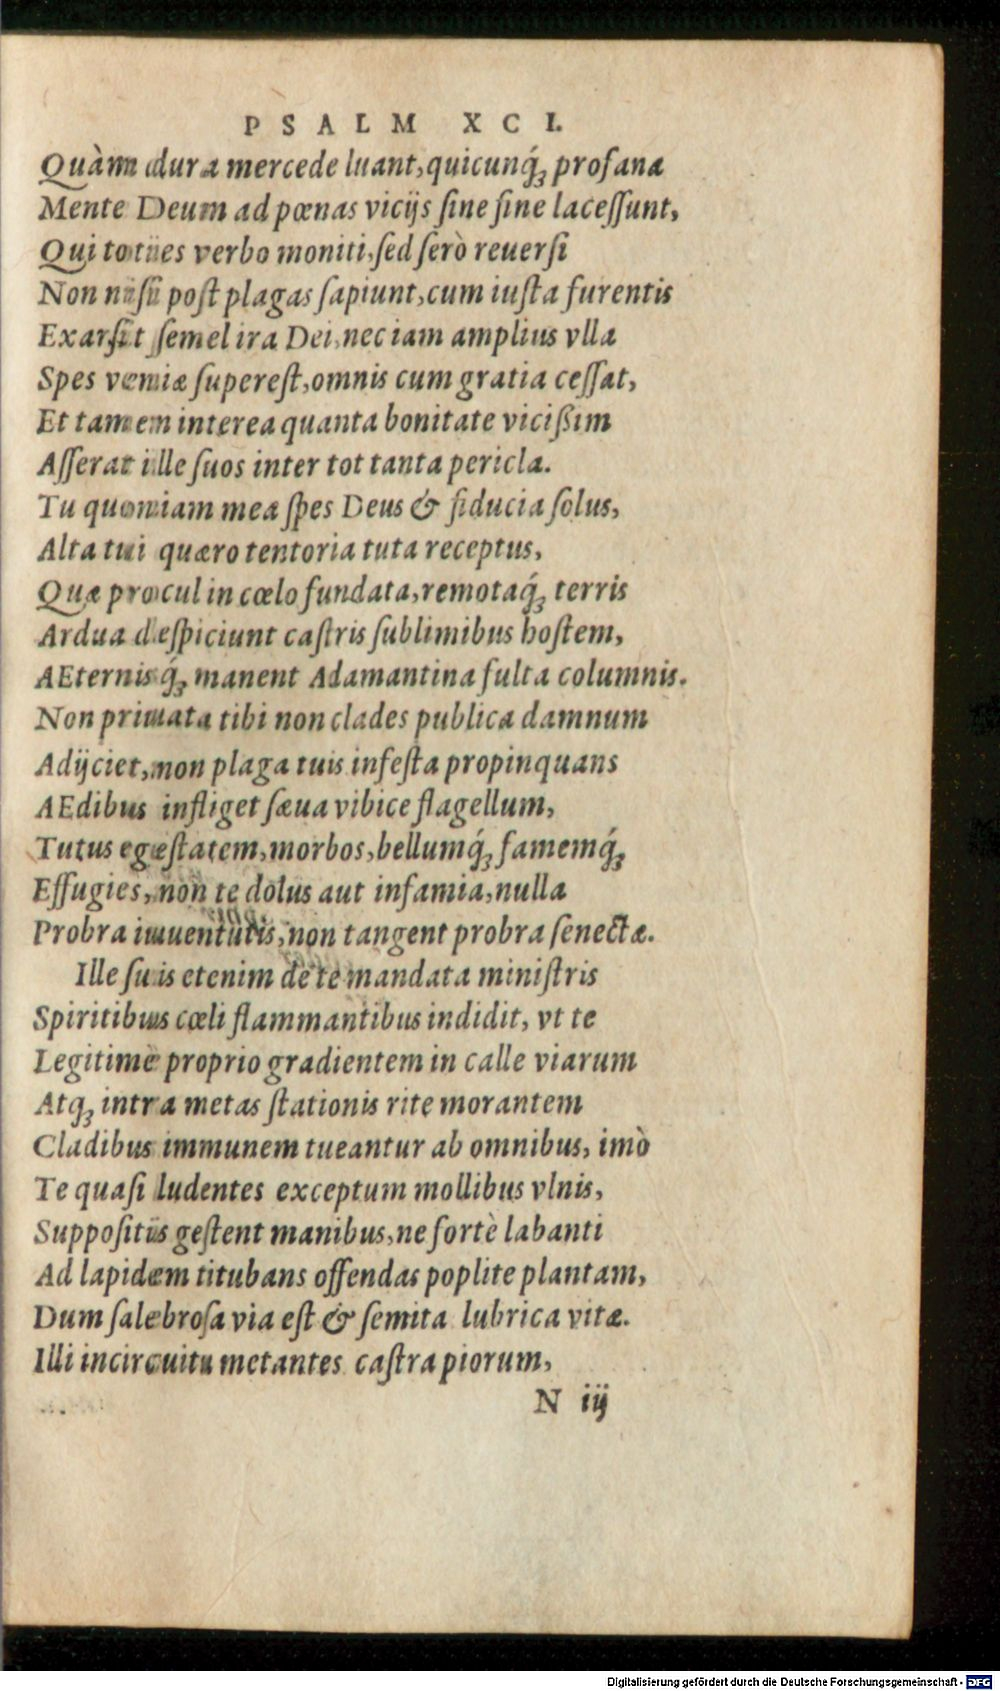 PSALM XCI.
Quàm dura mercede luant, quicunq́ꝫ profana
Mente Deum ad pœnas vicijs sine fine lacessunt,
Qui toties verbo moniti, sed serò reuersi
Non nisi post plagas sapiunt, cum iusta furentis
Exarsit semel ira Dei, nec iam amplius vlla
Spes veniæ superest, omnis cum gratia cessat,
Et tamen interea quanta bonitate vicißim
Asserat ille suos inter tot tanta pericla.
Tu quoniam mea spes Deus & fiducia solus,
Alta tui quæro tentoria tuta receptus,
Quæ procul in cœlo fundata, remotaq́ꝫ terris
Ardua despiciunt castris sublimibus hostem,
AEternisq́ꝫ manent Adamantina fulta columnis.
Non priuata tibi non clades publica damnum
Adijciet, non plaga tuis infesta propinquans
AEdibus infliget sæua vibice flagellum,
Tutus egestatem, morbos, bellumq́ꝫ famemq́ꝫ
Effugies, non te dolus aut infamia, nulla
Probra iuuentutis, non tangent probra senectæ.
Ille suis etenim de te mandata ministris
Spiritibus cœli flammantibus indidit, vt te
Legitimè proprio gradientem in calle viarum
Atqꝫ intra metas stationis rite morantem
Cladibus immunem tueantur ab omnibus, imò
Te quasi ludentes exceptum mollibus vlnis,
Suppositis gestent manibus, ne fortè labanti
Ad lapidem titubans offendas poplite plantam,
Dum salebrosa via est & semita lubrica vitæ.
Illi incircuitu metantes castra piorum,
N iij
Digitalisierung gefördert durch die Deutsche Forschungsgemeinschaft - DFG